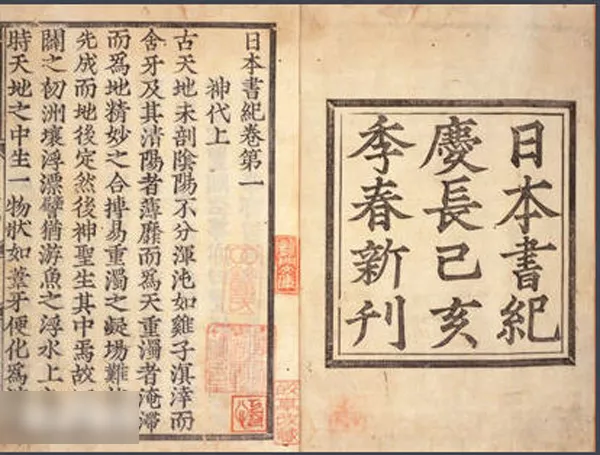 日本書紀
慶長己亥
季春新刊
日本書紀卷第一
神代上
古天地未剖陰陽不分渾沌如雞子溟涬而
含牙及其清陽者薄靡而爲天重濁者淹滯
而爲地精妙之合摶易重濁之凝場難
先成而地後定然後神聖生其中焉故
闢之初洲壤浮漂譬猶游魚之浮水上
時天地之中生一物狀如葦牙便化爲